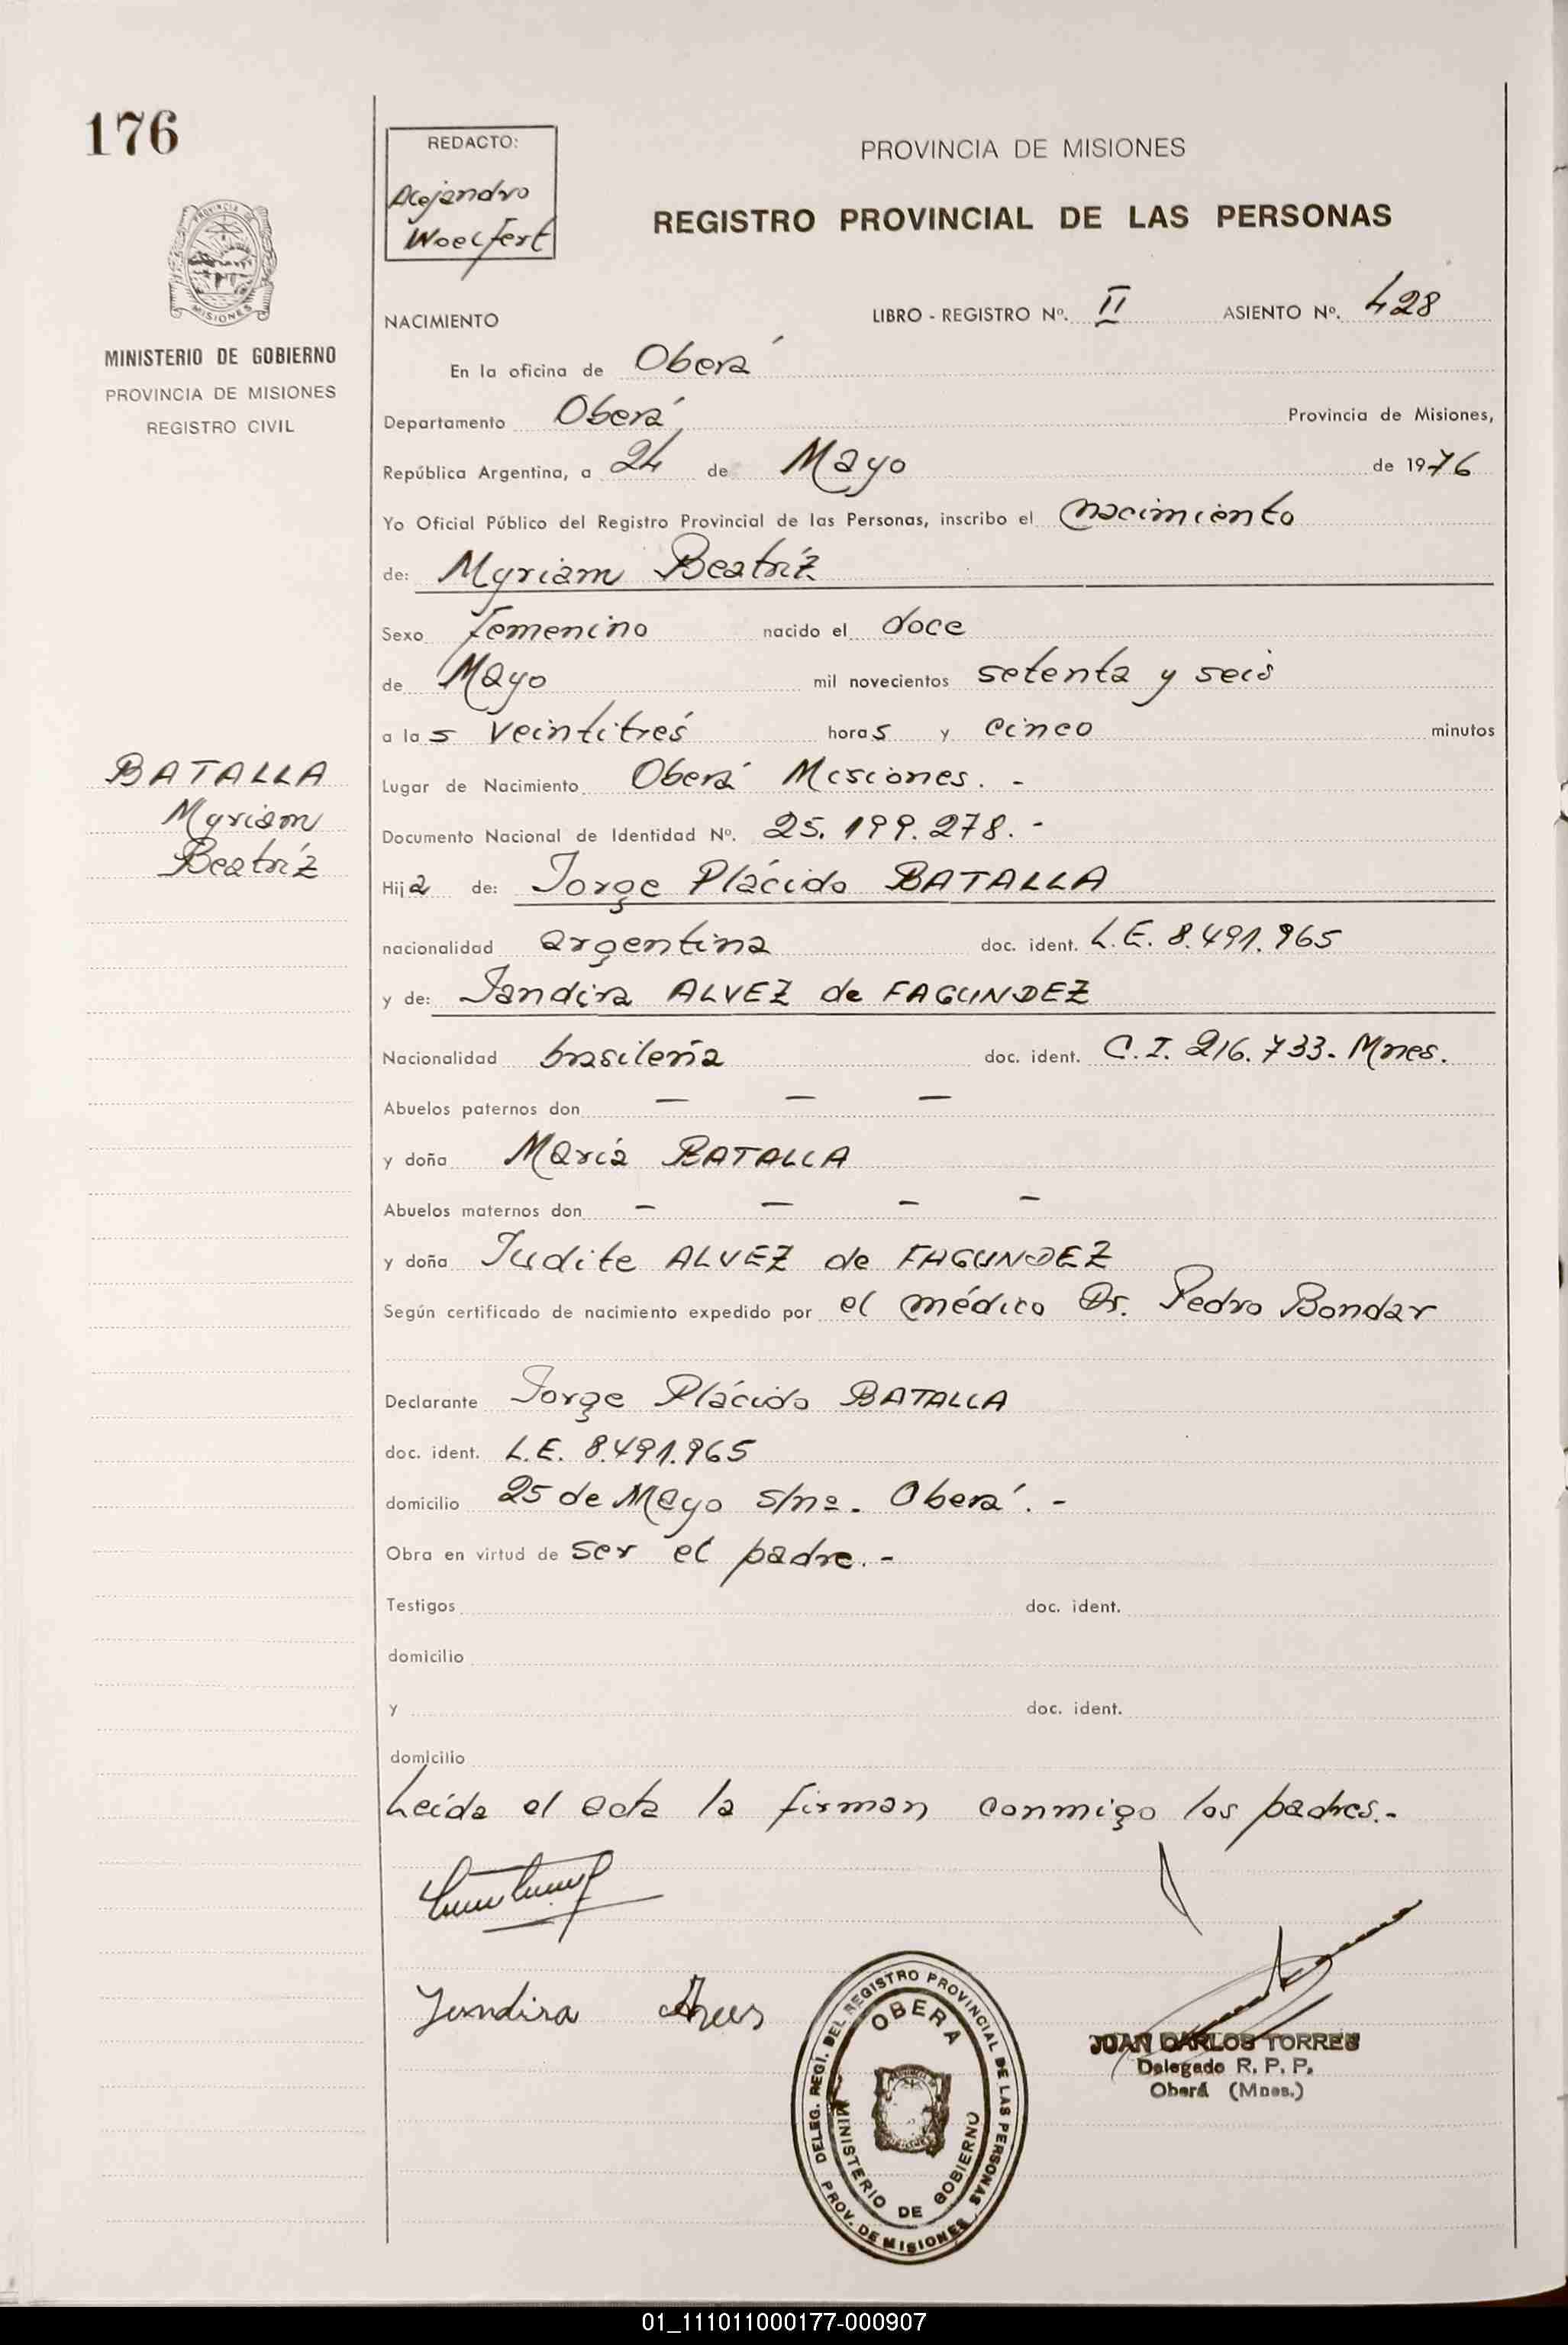 176
REDACTO:
Alejandro
Woelfert
PROVINCIA DE MISIONES
REGISTRO PROVINCIAL DE LAS PERSONAS
PROVINCIA DE
MISIONES
MINISTERIO DE GOBIERNO
PROVINCIA DE MISIONES
REGISTRO CIVIL
NACIMIENTO LIBRO - REGISTRO Nº. II ASIENTO Nº. 428
En la oficina de Oberá
Departamento Oberá Provincia de Misiones,
República Argentina, a 24 de Mayo de 1976
Yo Oficial Público del Registro Provincial de las Personas, inscribo el nacimiento
de: Myriam Beatríz
Sexo femenino nacido el doce
de Mayo mil novecientos setenta y seis
a las veintitrés horas y cinco minutos
Lugar de Nacimiento Oberá Misiones. -
Documento Nacional de Identidad Nº. 25.199.278. -
BATALLA
Myriam
Beatríz
Hija de: Jorge Plácido BATALLA
nacionalidad argentina doc. ident. L.E. 8.491.965
y de: Jandira ALVEZ de FAGUNDEZ
Nacionalidad brasileña doc. ident. C.I. 216.733. Mnes.
Abuelos paternos don — — —
y doña María BATALLA
Abuelos maternos don — — — —
y doña Judite ALVEZ de FAGUNDEZ
Según certificado de nacimiento expedido por el médico Dr. Pedro Bondar
Declarante Jorge Plácido BATALLA
doc. ident. L.E. 8.491.965
domicilio 25 de Mayo s/nº. Oberá. -
Obra en virtud de ser el padre. -
Testigos doc. ident.
domicilio
y doc. ident.
domicilio
Leída el acta la firman conmigo los padres.-
Jandira
DELEG. REGI. DEL REGISTRO PROVINCIAL DE LAS PERSONAS
PROV. DE MISIONES
OBERA
MINISTERIO DE GOBIERNO
JUAN CARLOS TORRES
Delegado R. P. P.
Oberá (Mnes.)
01_111011000177-000907